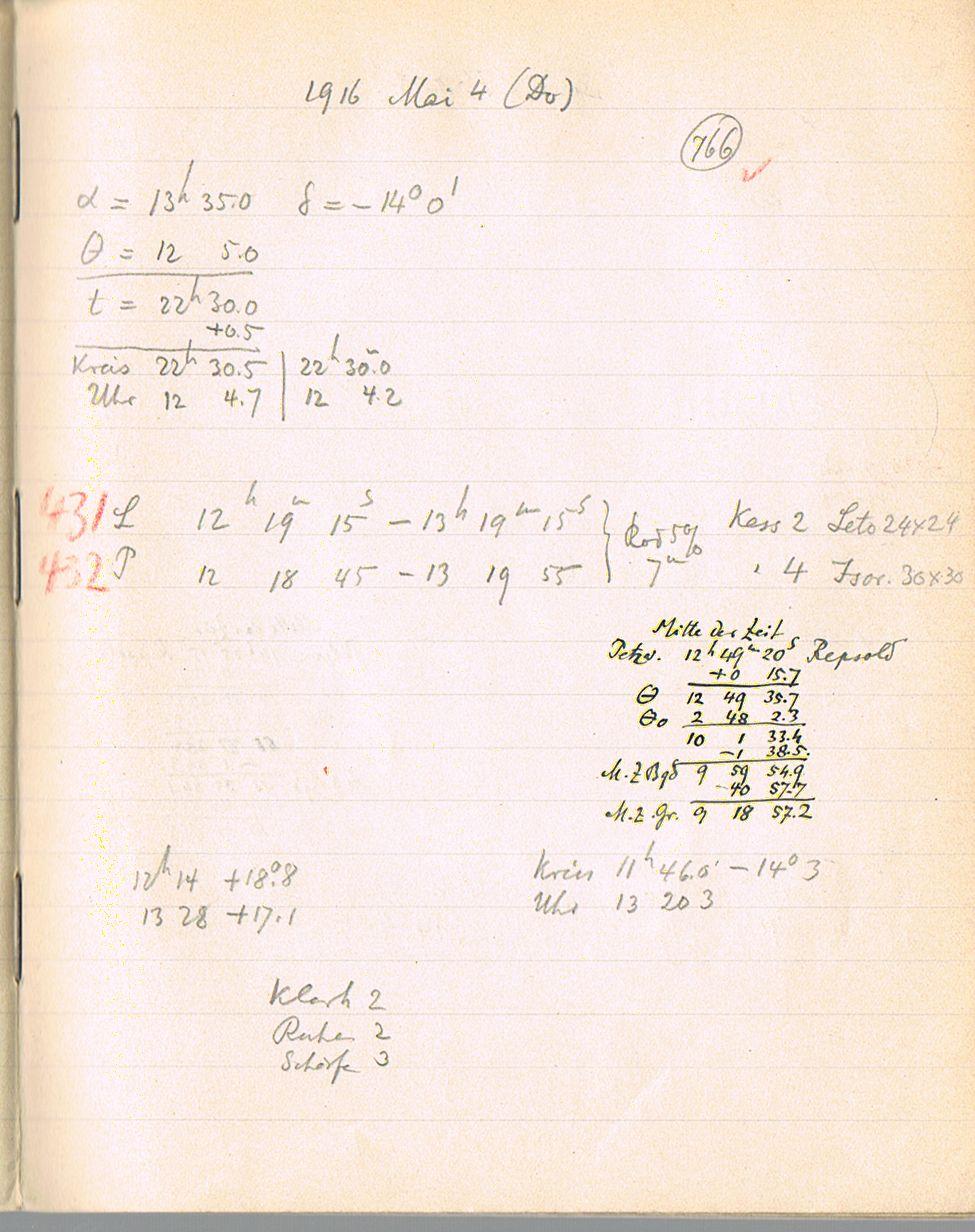 1916 Mai 4 (Do)
766
α = 13h 35.0 δ = -14° 0'
θ = 12 5.0
t = 22h 30.0
+0.5
Kreis 22h 30.5 | 22h 30.0
Uhr 12 4.7 | 12 4.2
431 L 12h 19m 15s - 13h 19m 15s Kass 2 Leto 24x24
432 P 12 18 45 - 13 19 55 7m 4 Isor. 30x30
Mitte der Zeit
Petzv. 12h 49m 20s Repsold
+0 15.7
Θ 12 49 35.7
Θ0 2 48 2.3
10 1 33.4
-1 38.5
M.Z Bgd 9 59 54.9
-40 57.7
M.Z.Gr. 9 18 57.2
12h 14 +18°.8
13 28 +17.1
Kreis 11h 46.0 -14° 3
Uhr 13 20 3
Klarh 2
Ruhe 2
Schärfe 3